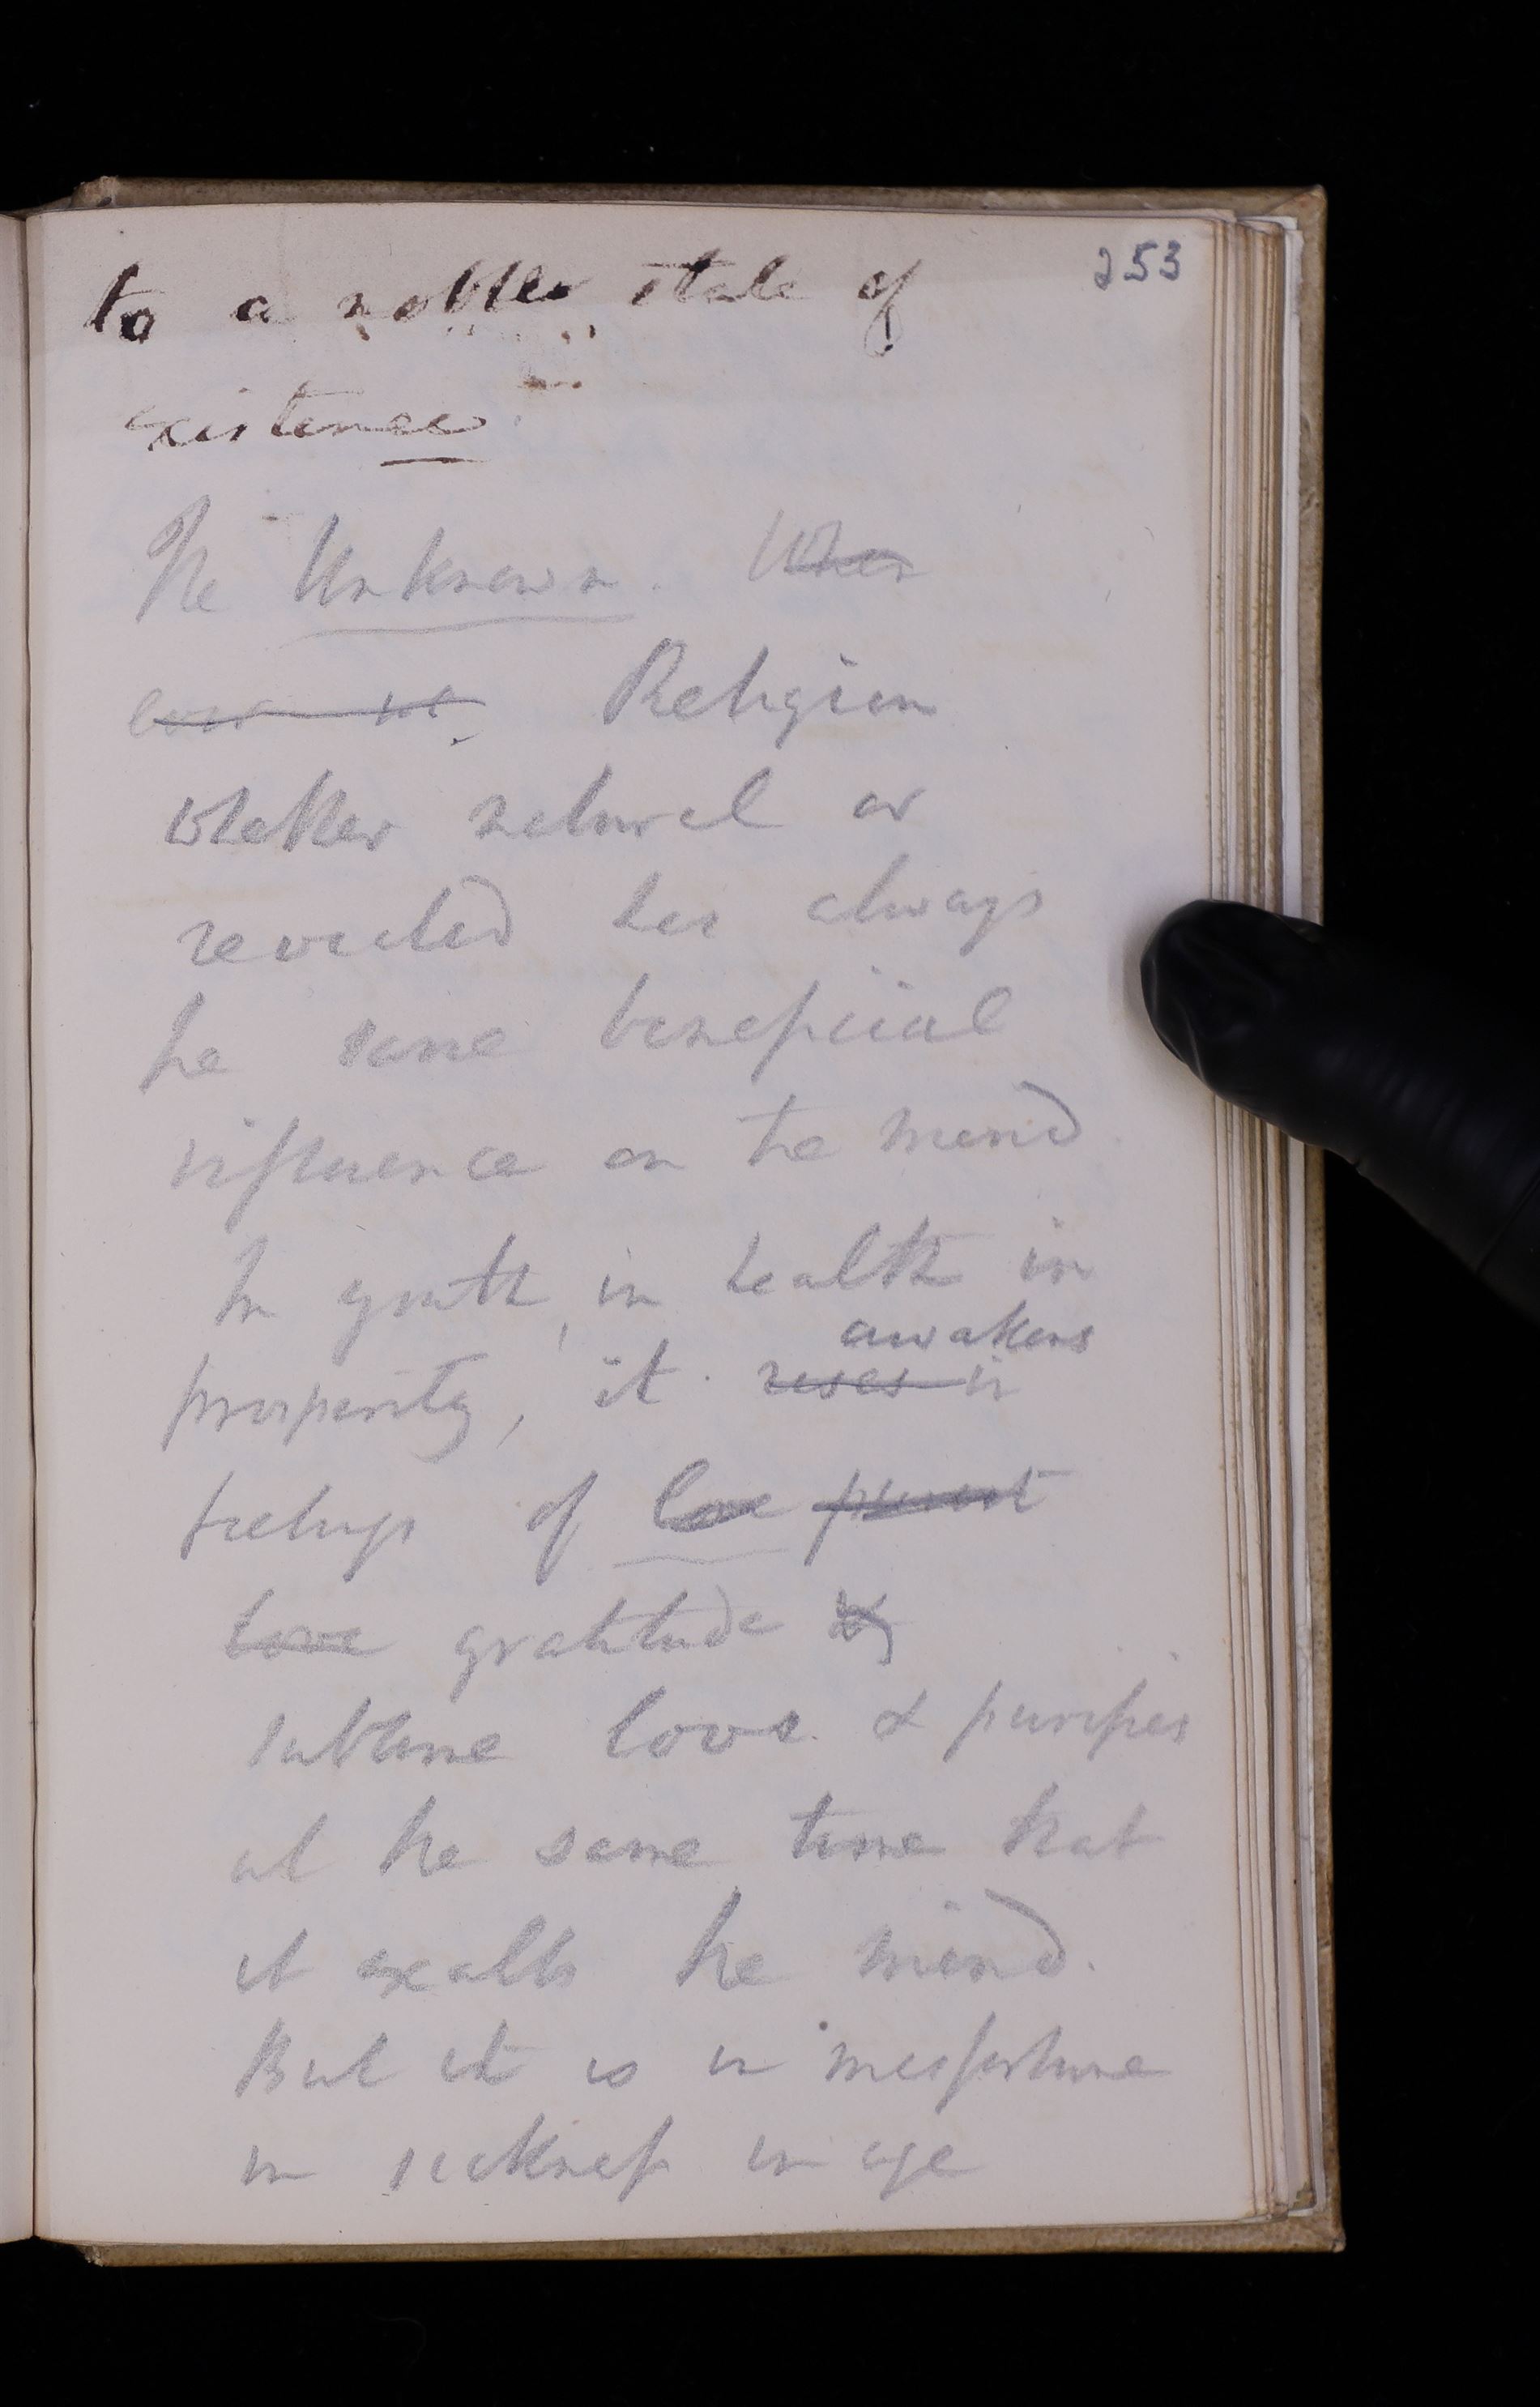 253
to a nobler state of
existence
The Unknown. When
Religion
whether natural or
revealed has always
the same beneficial
influence on the mind
In youth, in health in
awakens
prosperity, it rises in
feelings of love purest
love gratitude &
sublime love & purifies
at the same time that
it exalts the mind.
But it is in misfortune
in sickness in age